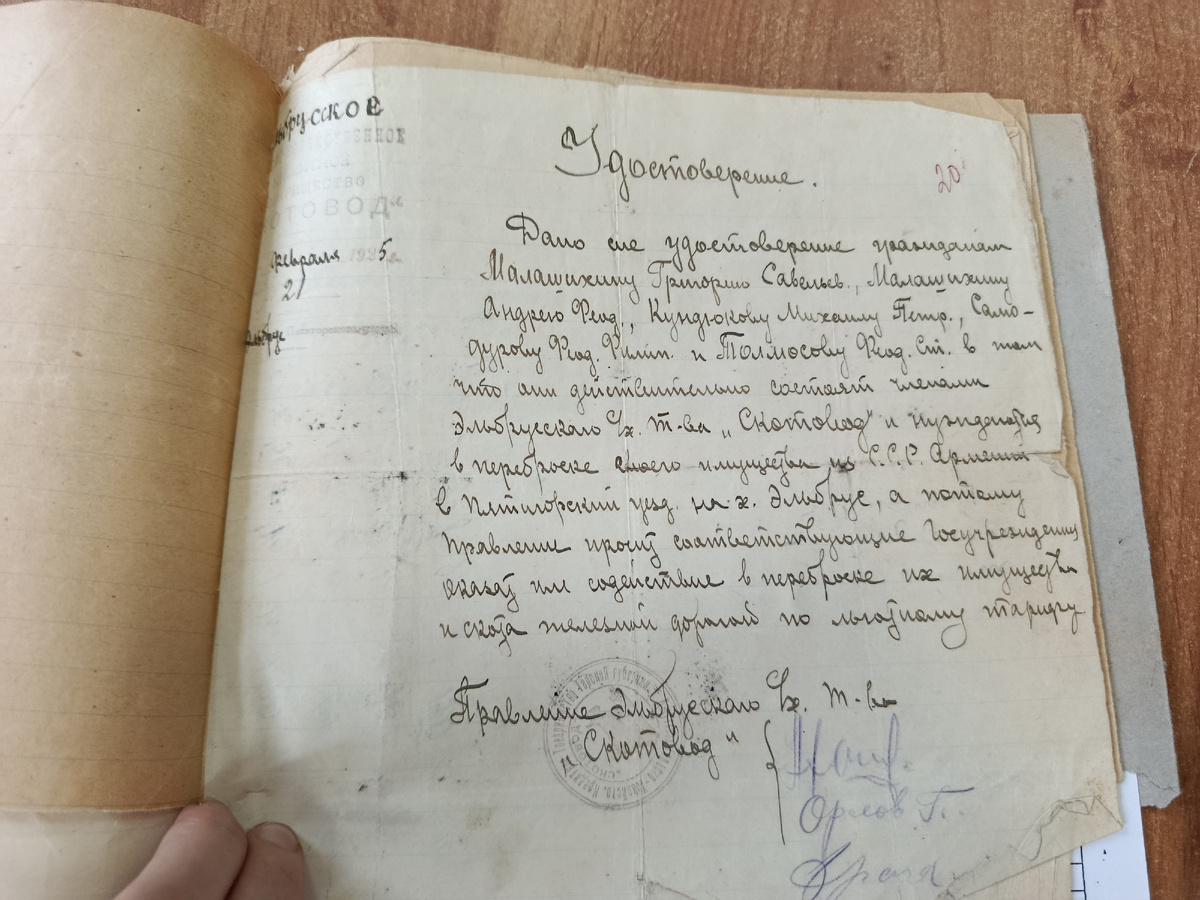 Эльбрусское
ОТОВОД"
февраля 1925 г.
21
Эльбрус
Удостоверение.
20
Дано сие удостоверение гражданам
Малашихину Григорию Савельев., Малашихину
Андрею Феод., Кундюкову Михаилу Петр., Само-
дурову Феод. Филип. и Толмосову Феод. Ст. в том
что они действительно состоят членами
Эльбрусскаго Сх. т-ва „Скотовод" и нуждаются
в переброске своего имущества из С.С.Р. Армении
в Пятигорский уезд. на х. Эльбрус, а потому
Правление просит соответствующие Госучреждения
оказать им содействие в переброске их имущества
и скота железной дорогой по льготному тарифу
Правление Эльбрусскаго Сх. т-ва
„Скотовод"
Орлов П.